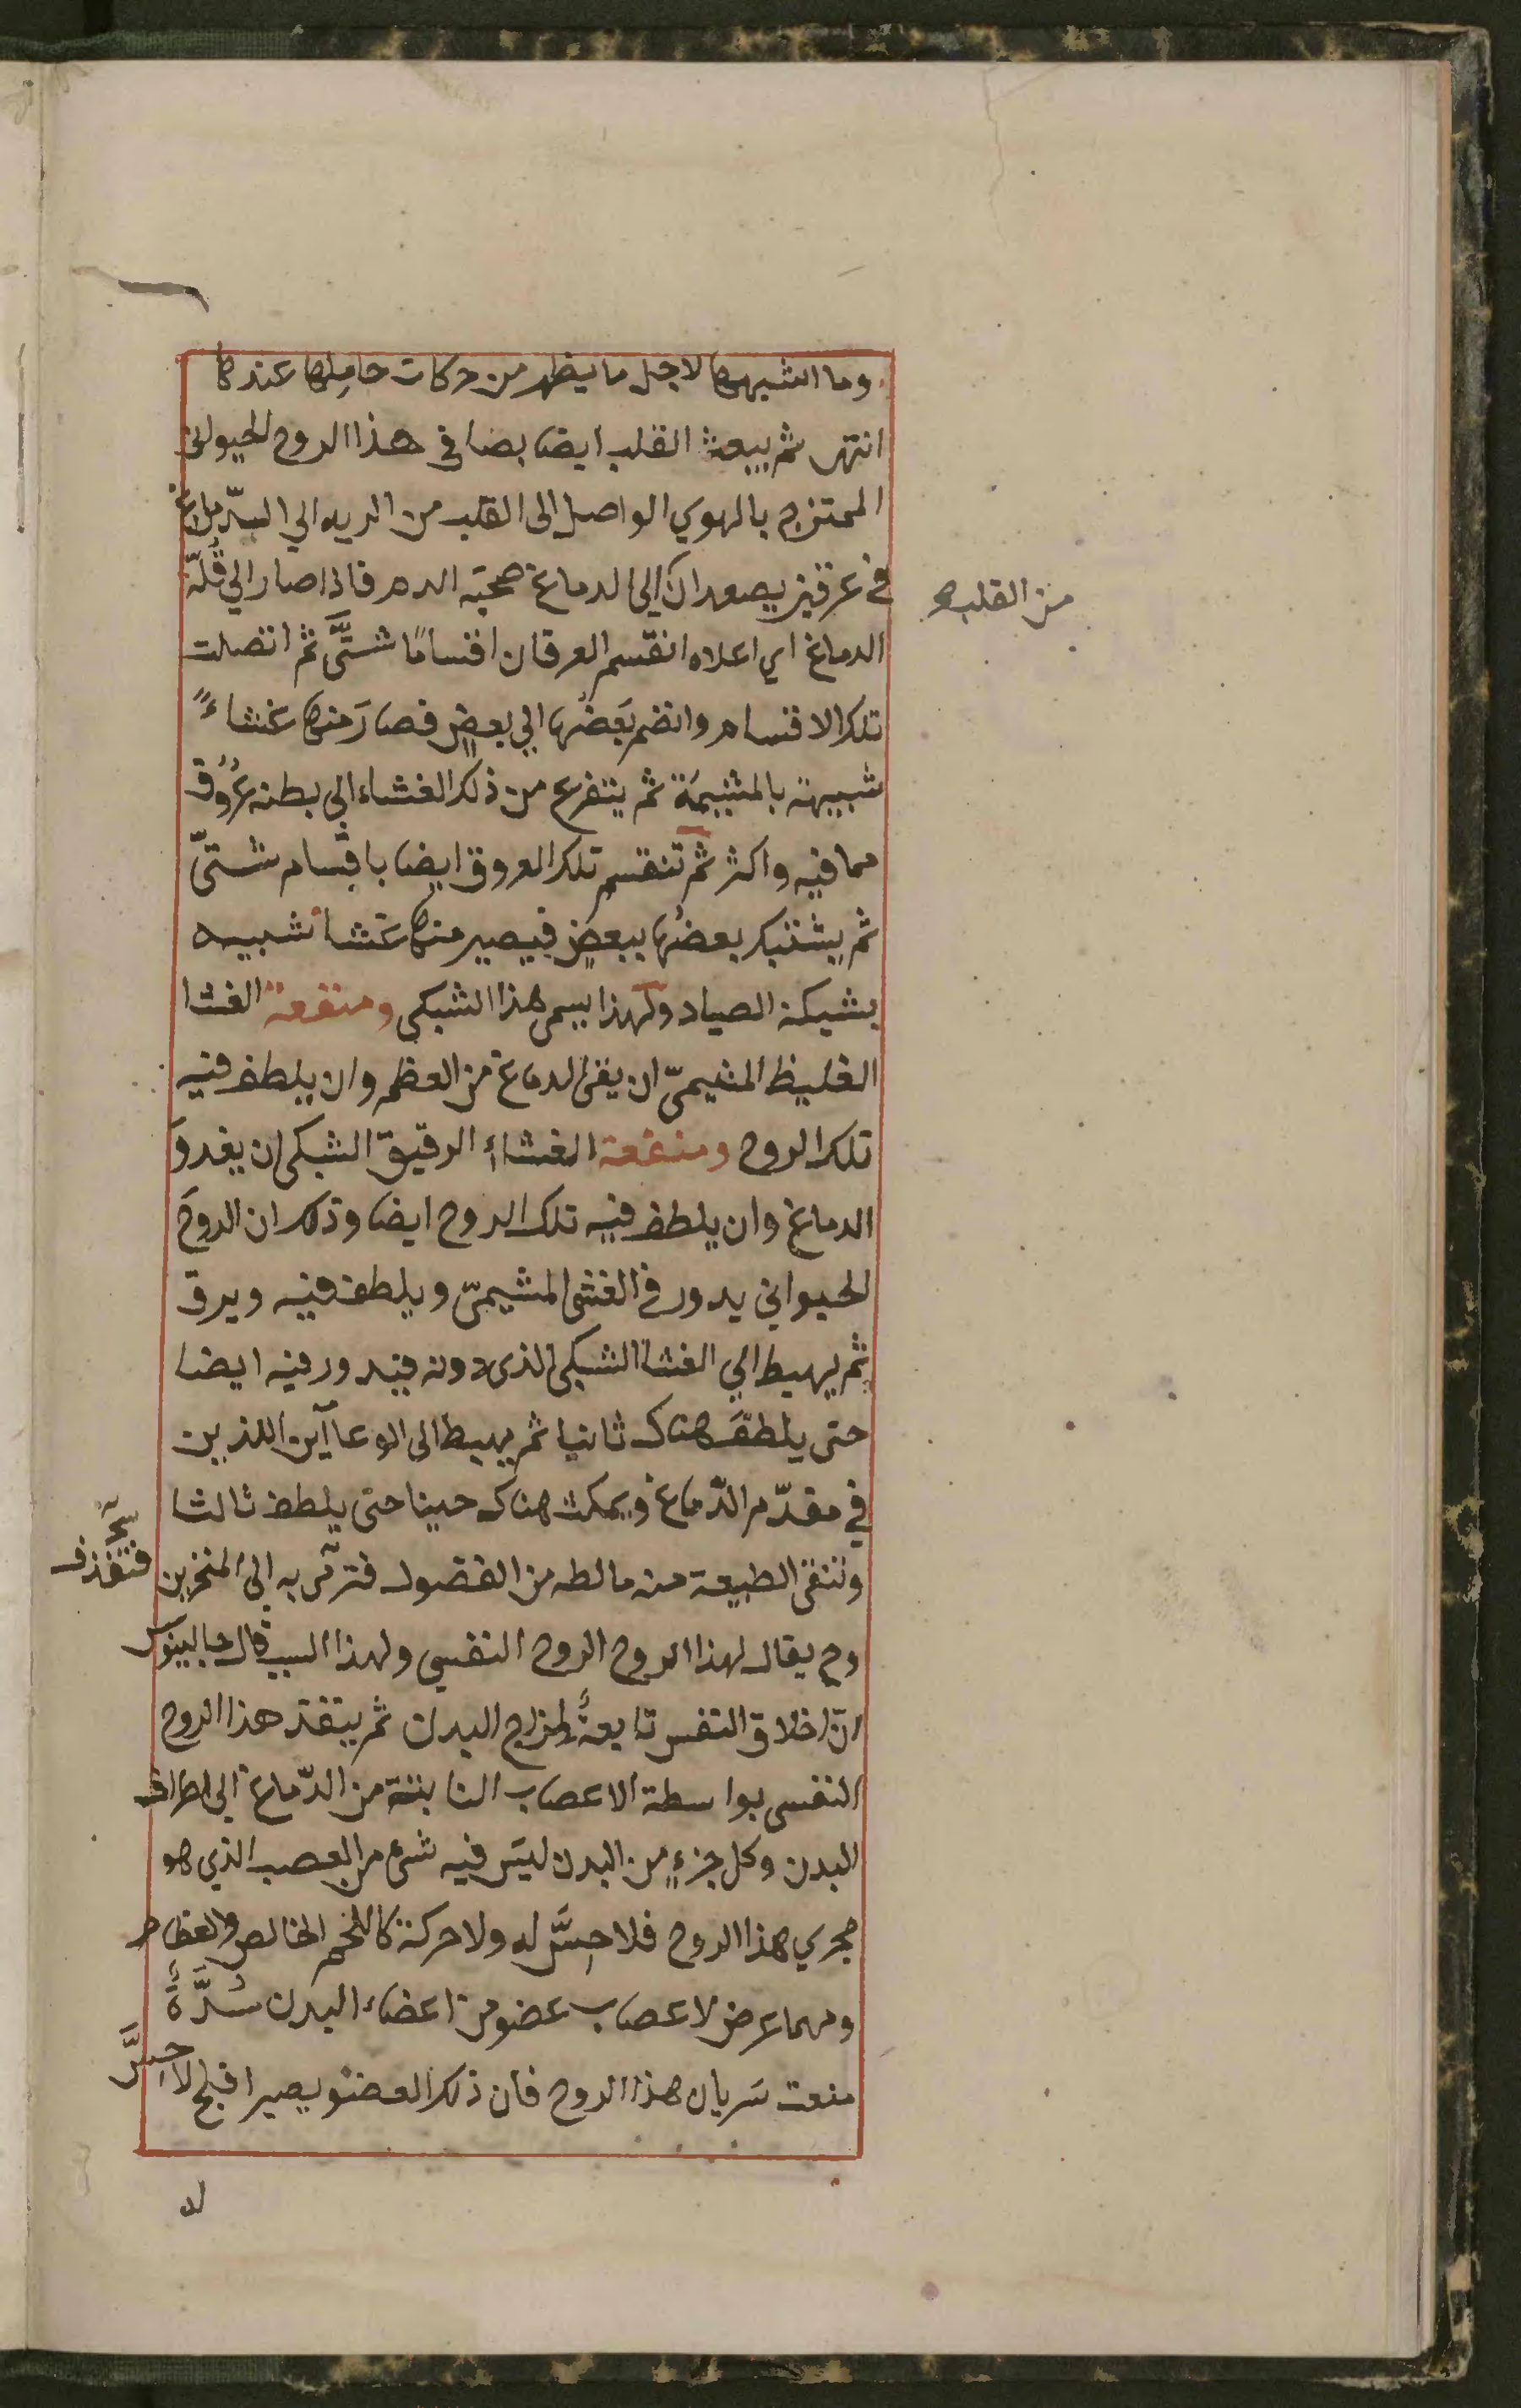 وما اشبهها لاجل ما يظهر من حركات حاملها عندها
انتهى ثم يبعث القلب ايضا بضا في هذا الروح الحيواني
الممتزج بالهوي الواصل الى القلب من الريه الي الدماغ
في عرقين يصعدان الى الدماغ صحبة الدم فاذا صار الي قُلّة
من القلب صح
الدماغ اي اعلاه انقسم العرقان اقسامًا شتَّى ثم اتصلت
تلك الاقسام وانضم بَعضُها الي بعضٍ فصارَ منها غشاءً
شبيهة بالمشيمَة ثم يتفرع من ذلك الغشاء الي بطنه عُرُوق
مما فيه واكثر ثم تنقسم تلك العروق ايضا باقسام شتىّ
ثم يشتبك بعضُها ببعضٍ فيصير منها غشا شبيه
بشبكة الصياد ولهذا يسمى هذا الشبكي ومنفعة الغشا
الغليظ المشيميّ ان يقى الدماغ من العظم وان يلطف فيه
تلك الروح ومنفعة الغشاء الرقيق الشبكي ان يغدوَ
الدماغ وان يلطف فيه تلك الروح ايضا وذلك ان الروحَ
الحيواني يدور في الغشى المشيميّ ويلطف فيه ويرق
ثم يهبط الي الغشا الشبكى الذى دونه فيدور فيه ايضا
حتى يلطفَ هناك ثانيا ثم يهبط الى الوعاآين اللذين
في مقدّم الدّماغ ويمكث هناك حينا حتى يلطف ثالثا
وتنقى الطبيعة منه مالطه من الفضول فترمى به الى المنخرين
فتقذف
وح يقال لهذا الروح الروح النفسي ولهذا السبب قال جالينوس
انّ اخلاق النفس تابعةٌ لمزاج البدن ثم ينفذ هذا الروح
النفسى بواسطة الاعصاب النابتة من الدّماغ الى اطراف
البدن وكل جزءٍ من البدن ليسَ فيه شئ من العصب الذي هو
مجري هذا الروح فلا حِسَّ له ولا حركة كاللحم الخالص والعظام
ومهما عرض لاعصاب عضو من اعضاء البدن سُدَّةٌ
منعت سَريان هذا الروح فان ذلك العضو يصير افلج لا حِسَّ
له